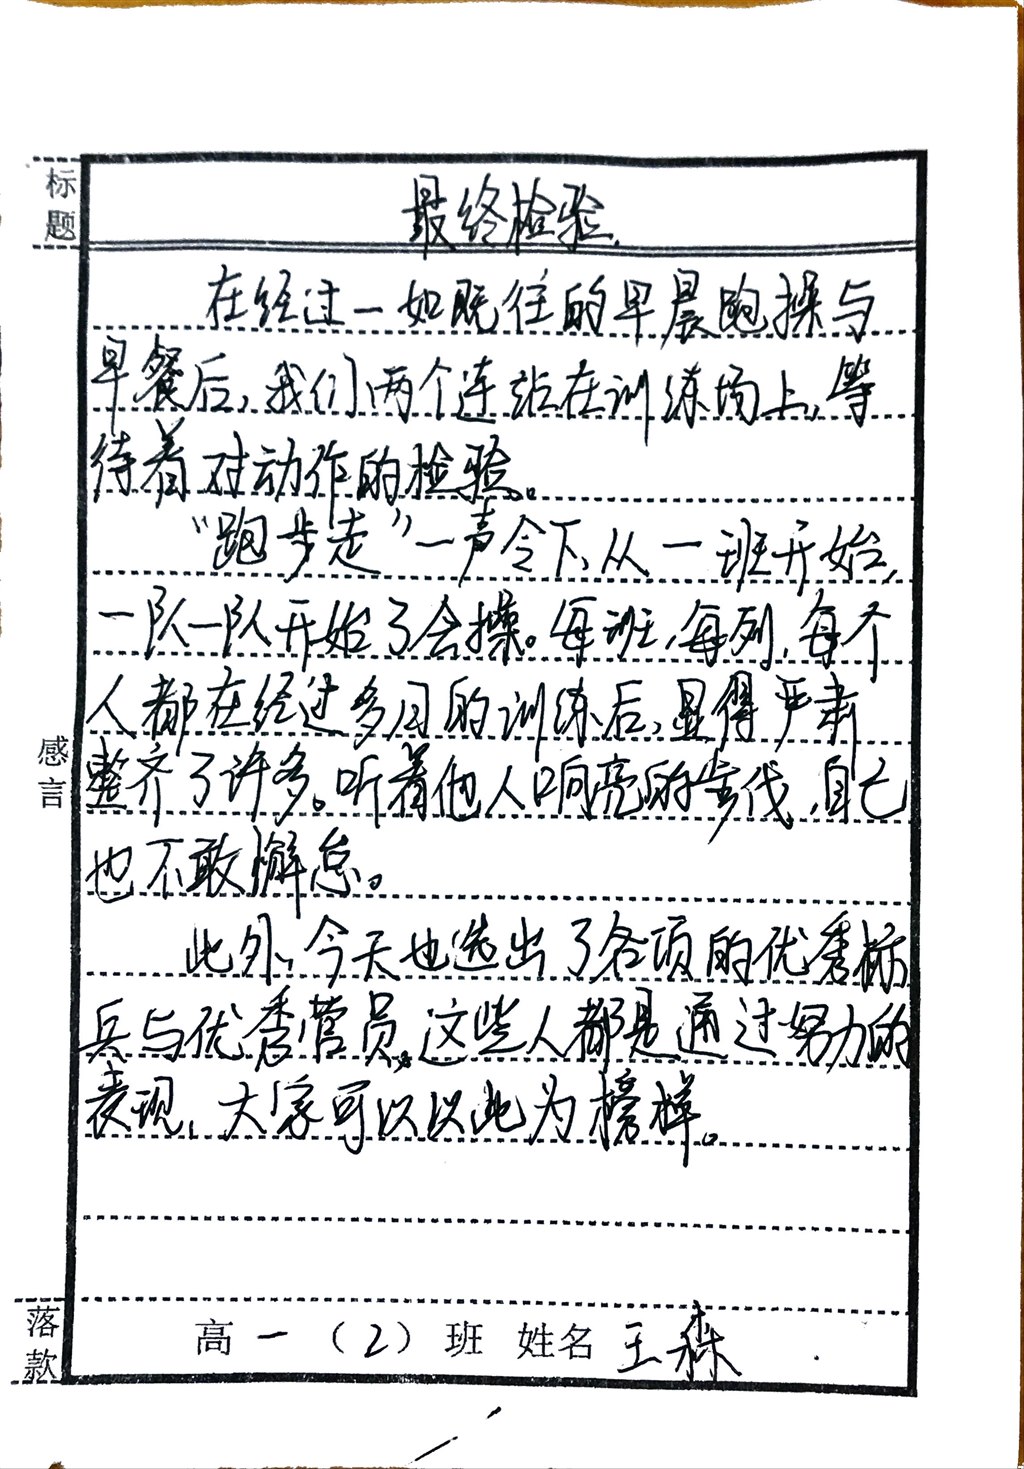 标题
最终检验
在经过一如既往的早晨跑操与
早餐后，我们两个连站在训练场上，等
待着对动作的检验。
“跑步走”一声令下，从一班开始，
一队一队开始了会操。每班，每列，每个
人都在经过多日的训练后，显得严肃
整齐了许多。听着他人响亮的步伐，自己
也不敢懈怠。
感言
此外，今天也选出了各项的优秀标
兵与优秀营员，这些人都是通过努力的
表现，大家可以以此为榜样。
落款
高一（2）班 姓名 王森